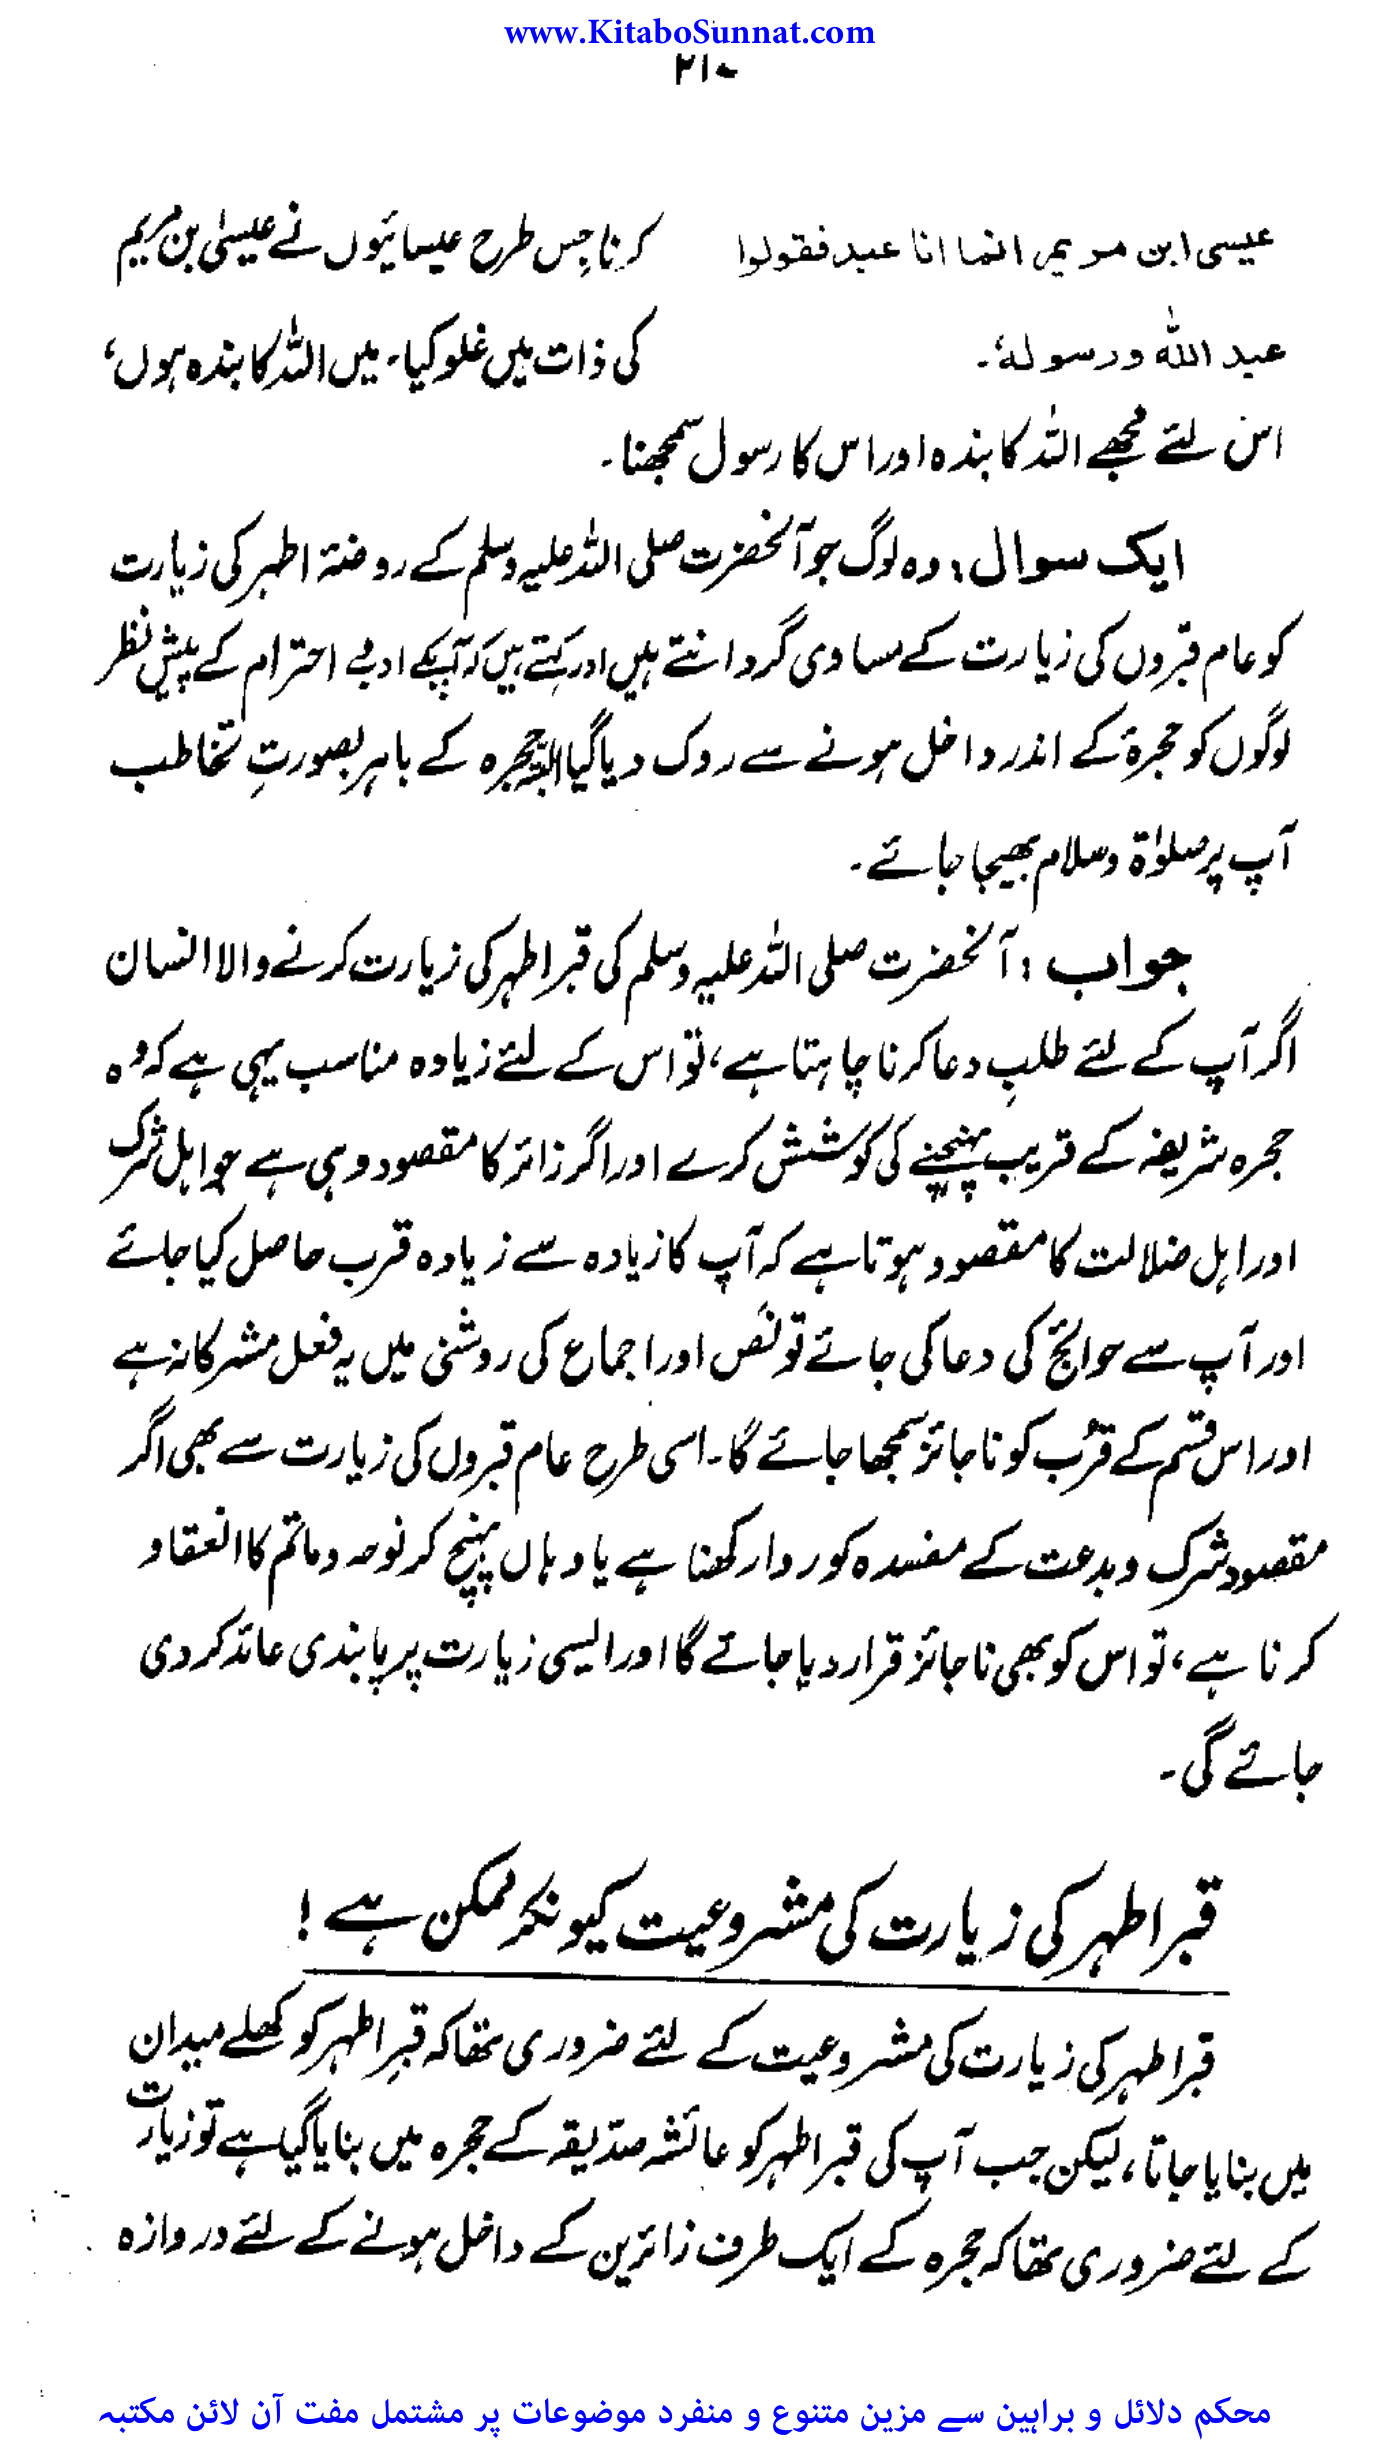 www.KitaboSunnat.com
۲۱۰
عیسی ابن مریم انما انا عبد فقولوا
عبد اللہ ورسولہ۔
کرنا جس طرح عیسائیوں نے عیسیٰ بن مریم
کی ذات میں غلو کیا۔ میں اللہ کا بندہ ہوں،
اس لئے مجھے اللہ کا بندہ اور اس کا رسول سمجھنا۔
ایک سوال: وہ لوگ جو آنحضرت صلی اللہ علیہ وسلم کے روضۂ اطہر کی زیارت
کو عام قبروں کی زیارت کے مساوی گردانتے ہیں اور کہتے ہیں کہ آپ کے ادب و احترام کے پیش نظر
لوگوں کو حجرۂ کے اندر داخل ہونے سے روک دیا گیا البتہ حجرہ کے باہر بصورتِ تخاطب
آپ پر صلوٰۃ وسلام بھیجا جائے۔
جواب: آنحضرت صلی اللہ علیہ وسلم کی قبر اطہر کی زیارت کرنے والا انسان
اگر آپ کے لئے طلبِ دعا کرنا چاہتا ہے، تو اس کے لئے زیادہ مناسب یہی ہے کہ وہ
حجرہ شریفہ کے قریب پہنچنے کی کوشش کرے اور اگر زائر کا مقصود وہی ہے جو اہل شرک
اور اہل ضلالت کا مقصود ہوتا ہے کہ آپ کا زیادہ سے زیادہ قرب حاصل کیا جائے
اور آپ سے حوائج کی دعا کی جائے تو نص اور اجماع کی روشنی میں یہ فعل مشرکانہ ہے
اور اس قسم کے قرُب کو ناجائز سمجھا جائے گا۔ اسی طرح عام قبروں کی زیارت سے بھی اگر
مقصود شرک و بدعت کے مفسدہ کو روا رکھنا ہے یا وہاں پہنچ کر نوحہ و ماتم کا انعقاد
کرنا ہے، تو اس کو بھی ناجائز قرار دیا جائے گا اور ایسی زیارت پر پابندی عائد کر دی
جائے گی۔
قبر اطہر کی زیارت کی مشروعیت کیونکر ممکن ہے!
قبر اطہر کی زیارت کی مشروعیت کے لئے ضروری تھا کہ قبرِ اطہر کو کھلے میدان
میں بنایا جاتا، لیکن جب آپ کی قبر اطہر کو عائشہ صدّیقہ کے حجرہ میں بنایا گیا ہے تو زیارت
کے لئے ضروری تھا کہ حجرہ کے ایک طرف زائرین کے داخل ہونے کے لئے دروازہ
محکم دلائل و براہین سے مزین متنوع و منفرد موضوعات پر مشتمل مفت آن لائن مکتبہ